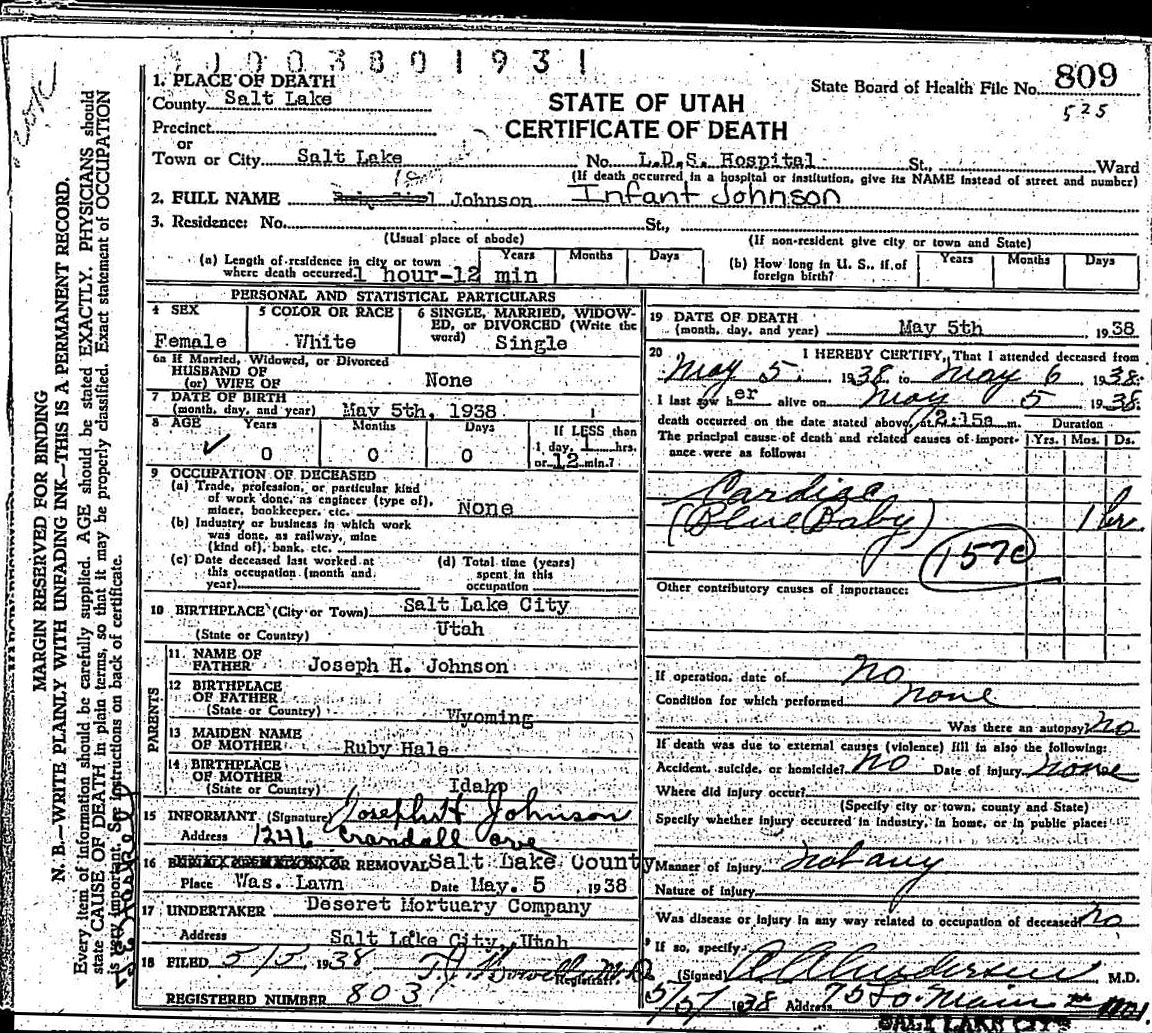 9 0 0 0 3 8 0 1 9 3 1
State Board of Health File No. 809
525
1. PLACE OF DEATH
County Salt Lake
STATE OF UTAH
CERTIFICATE OF DEATH
Precinct
or
Town or City Salt Lake No. L.D.S. Hospital St., Ward
(If death occurred in a hospital or institution, give its NAME instead of street and number)
2. FULL NAME Johnson Infant Johnson
3. Residence: No. St.,
(Usual place of abode) (If non-resident give city or town and State)
(a) Length of residence in city or town where death occurred 1 hour-12 min Years Months Days
(b) How long in U. S., if of foreign birth? Years Months Days
PERSONAL AND STATISTICAL PARTICULARS
4 SEX Female
5 COLOR OR RACE White
6 SINGLE, MARRIED, WIDOWED, or DIVORCED (Write the word) Single
6a If Married, Widowed, or Divorced
HUSBAND OF
(or) WIFE OF None
7 DATE OF BIRTH
(month, day, and year) May 5th, 1938
8 AGE Years Months Days If LESS than
✓ 0 0 0 1 day, 1 hrs.
or 12 min.?
9 OCCUPATION OF DECEASED
(a) Trade, profession, or particular kind
of work done, as engineer (type of),
miner, bookkeeper, etc. None
(b) Industry or business in which work
was done, as railway, mine
(kind of), bank, etc.
(c) Date deceased last worked at
this occupation (month and
year)
(d) Total time (years)
spent in this
occupation
10 BIRTHPLACE (City or Town) Salt Lake City
(State or Country) Utah
PARENTS
11. NAME OF
FATHER Joseph H. Johnson
12 BIRTHPLACE
OF FATHER
(State or Country) Wyoming
13 MAIDEN NAME
OF MOTHER Ruby Hale
14 BIRTHPLACE
OF MOTHER
(State or Country) Idaho
15 INFORMANT (Signature) Joseph H Johnson
Address 1246 Crandall ave
16 OR REMOVAL Salt Lake County
Place Was. Lawn Date May. 5, 1938
17 UNDERTAKER Deseret Mortuary Company
Address Salt Lake City, Utah
18 FILED 5/5 1938
Registrar.
REGISTERED NUMBER 803
19 DATE OF DEATH
(month, day, and year) May 5th 1938
20 I HEREBY CERTIFY, That I attended deceased from
May 5. 1938 to May 6 1938.
I last saw her alive on May 5 1938
death occurred on the date stated above, at 2:15a m.
Duration
The principal cause of death and related causes of importance were as follows: Yrs. Mos. Ds.
Cardiac
(Blue Baby) 1 hr.
157c
Other contributory causes of importance:
If operation, date of no
Condition for which performed none
Was there an autopsy? no
If death was due to external causes (violence) fill in also the following:
Accident, suicide, or homicide? no Date of injury none
Where did injury occur?
(Specify city or town, county and State)
Specify whether injury occurred in industry, in home, or in public place:
Manner of injury not any
Nature of injury
Was disease or injury in any way related to occupation of deceased? no
If so, specify
(Signed) M.D.
5/5/ 1938 Address 75 So. Main
SALT LAKE CITY
MARGIN RESERVED FOR BINDING
N. B.—WRITE PLAINLY WITH UNFADING INK—THIS IS A PERMANENT RECORD.
Every item of information should be carefully supplied. AGE should be stated EXACTLY. PHYSICIANS should
state CAUSE OF DEATH in plain terms, so that it may be properly classified. Exact statement of OCCUPATION
is very important. See instructions on back of certificate.